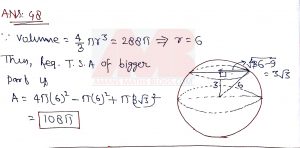 ANS: 98
∵ Volume = 4/3 πr³ = 288π ⇒ r = 6
Thus, Req. T.S.A of bigger
part is
A = 4π(6)² - π(6)² + π(3√3)²
= 108π
√36-9
= 3√3
3
6